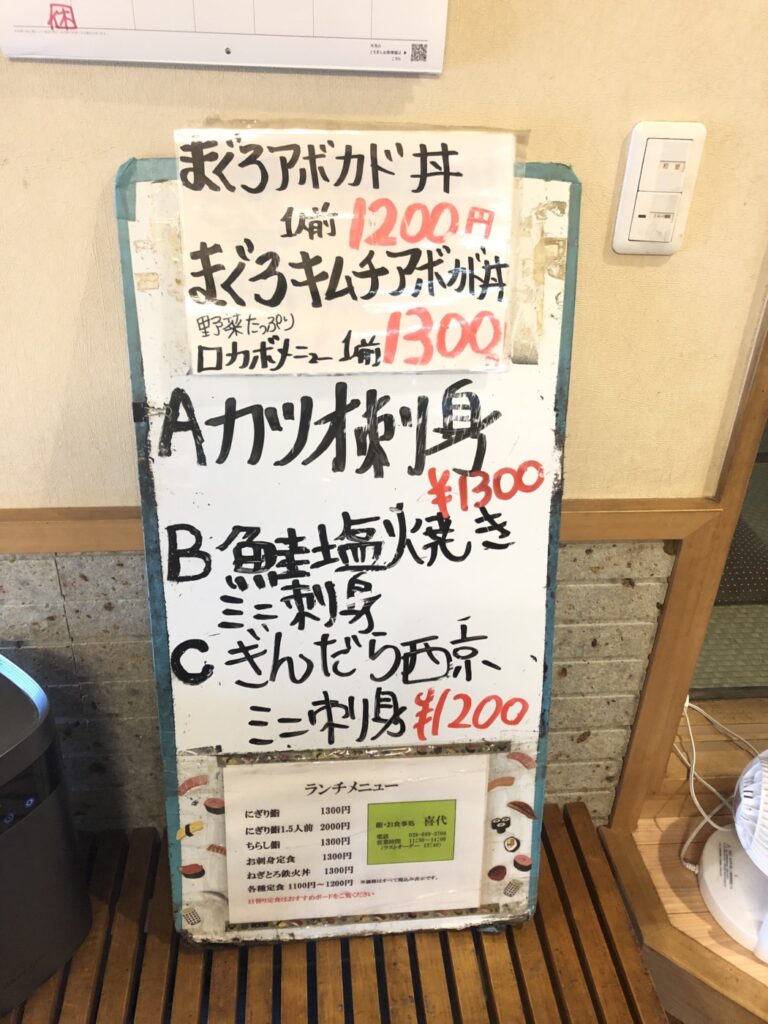 休
まぐろアボカド丼
1人前 1200円
まぐろキムチアボカド丼
野菜たっぷり
ロカボメニュー 1人前 1300
Aカツオ刺身
¥1300
B 鮭塩焼き
ミニ刺身
C ぎんだら西京
ミニ刺身 ¥1200
ランチメニュー
にぎり鮨 1300円
にぎり鮨1.5人前 2000円
ちらし鮨 1300円
お刺身定食 1300円
ねぎとろ鉄火丼 1300円
各種定食 1100円～1200円
日替り定食はおすすめボードをご覧ください
鮨・お食事処 喜代
電話
営業時間 11:30～14:00
(ラストオーダー 13:40)
※価格はすべて税込み表示です。